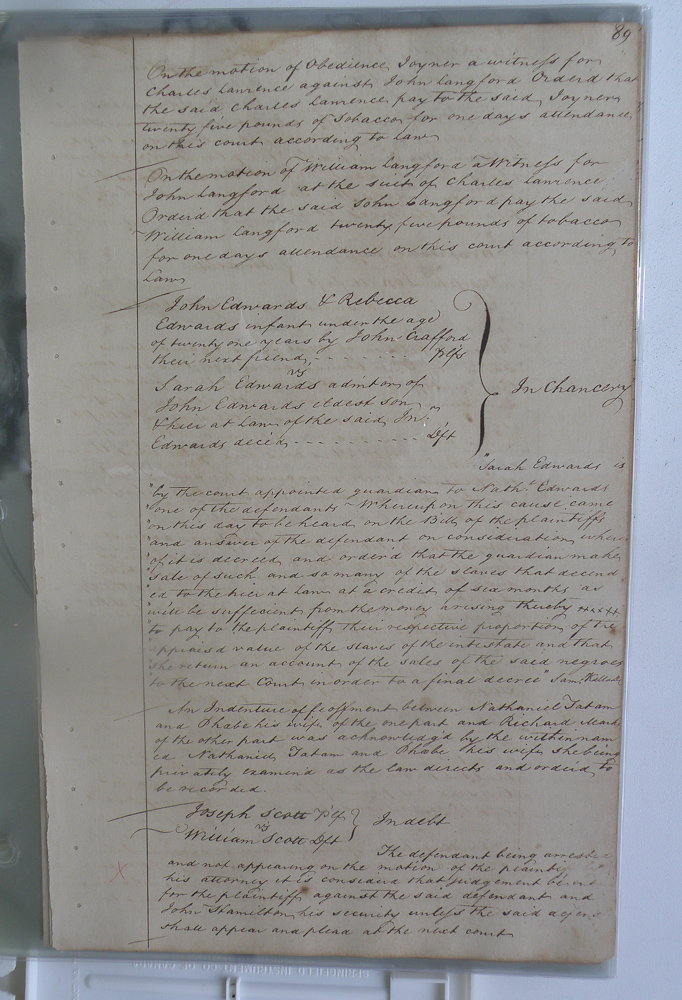 89
On the motion of Obedience Joyner a witness for
Charles Lawrence against John Langford Orderd that
the said Charles Lawrence pay to the said Joyner
twenty five pounds of tobacco for one days attendance
on this court according to Law
On the motion of William Langford a Witness for
John Langford at the suit of Charles Lawrence
Orderd that the said John Langford pay the said
William Langford twenty five pounds of tobacco
for one days attendance on this court according to
Law
John Edwards & Rebecca
Edwards infant under the age
of twenty one years by John Crafford
their next friend - - - - - - - - Pltfs
vs
Sarah Edwards admtors of
John Edwards eldest son
& heir at Law of the said Jno.
Edwards decd. - - - - - - - - - Dft
In Chancery
"Sarah Edwards is
"by the court appointed guardian to Nathl. Edwards
"one of the defendants Whereupon this cause came
"on this day to be heard on the Bill of the plaintiffs
"and answer of the defendant on consideration where
"of it is decreed and order'd that the guardian make
"Sale of such and so many of the slaves that decend
"ed to the heir at Law at a credit of six months as
"will be suffecient from the money arising thereby xxxxx
"to pay to the plaintiff their respective proportion of the
"appraisd value of the slaves of the intestate and that
"she return an account of the sales of the said negroes
"to the next Court in order to a final decree" Saml.
An Indenture of feoffment between Nathaniel Tatam
and Phabe his wife of the one part and Richard
of the other part was acknowledg'd by the within nam
ed Nathaniel Tatam and Phabe his wife she being
privately examend as the law directs and orderd to
be recorded.
Joseph Scott Pltf
vs
William Scott Dft
In debt
The defendant being arrested
and not appearing on the motion of the plainty
his attorney it is considerd that Judgement be ent
for the plaintiff against the said defendant and
John Hamilton his security unless the said defend
shall appear and plead at the next court
SPRINGFIELD INSTRUMENT CO. OF CANADA